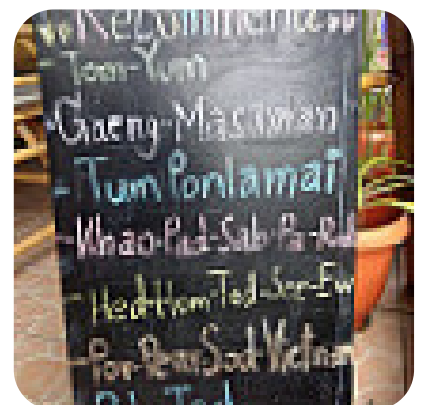 Recommend
- Tom-Yum
- Gaeng-Masaman
- Tum Ponlamai
- Khao-Pad-Sab-Pa-Rod
- Hed-Hom-Tod-See-Ew
- Poo-Pean-Sod-Vietnam
Tod